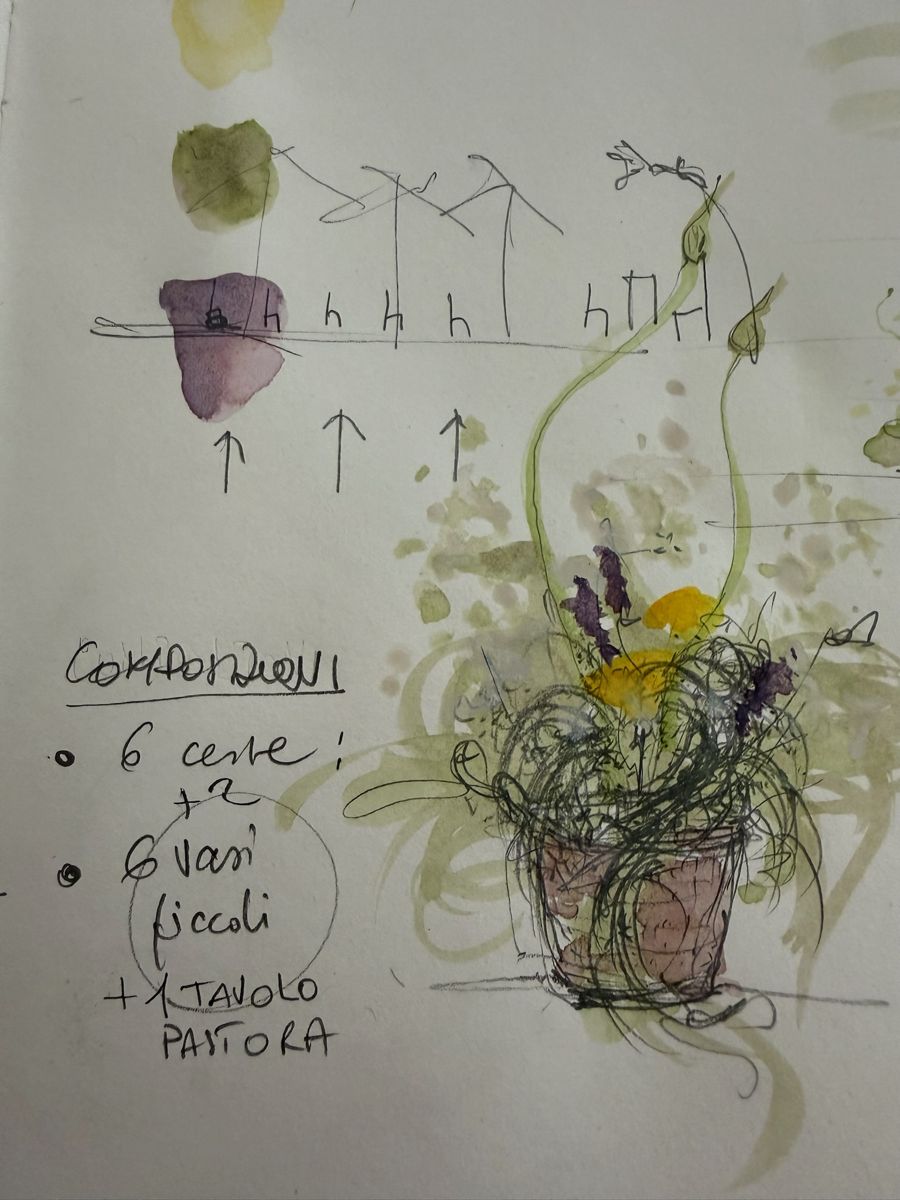 COMPOSIZIONI
• 6 ceste !
+2
• 6 vasi
piccoli
+ 1 TAVOLO
PASTORA